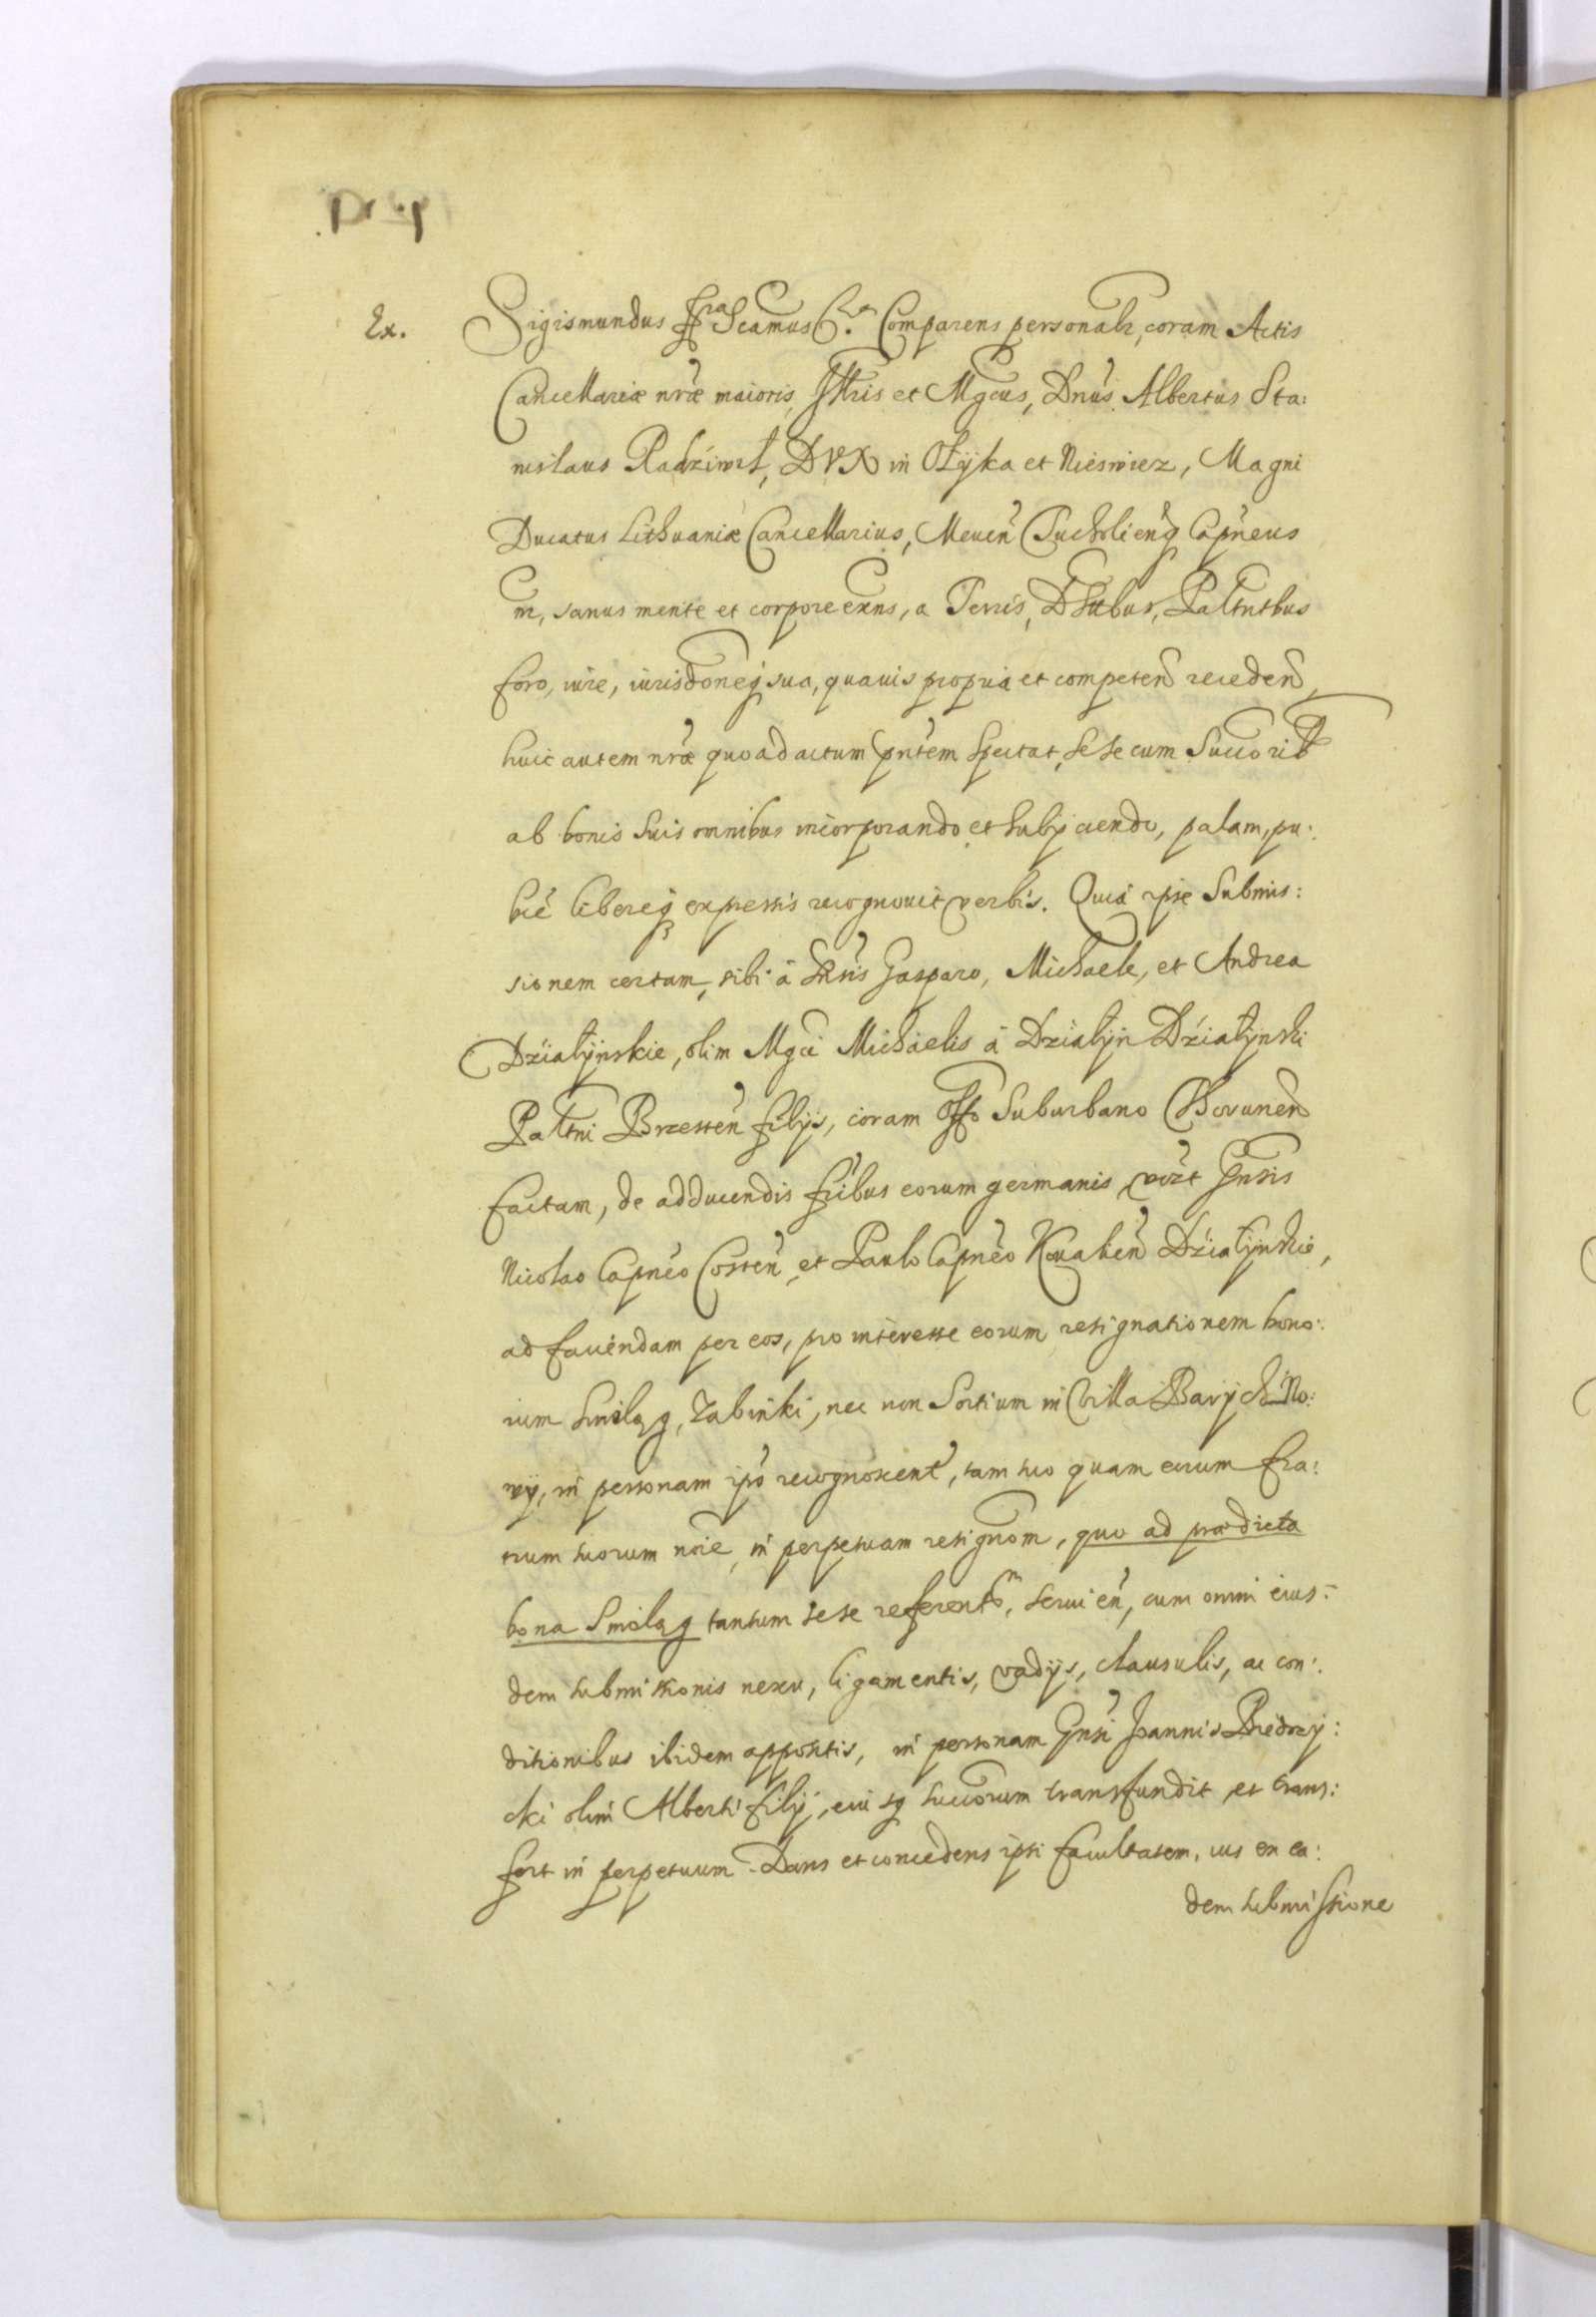 Ex.
Sigismundus &ra Scamus &ra Comparens personalr, coram Actis
Cancellariæ nræ maioris, Illris et Mgcus, Dnus Albertus Sta:
nislaus Radźiwił, DVX in Ołyka et Nieswiez, Magni
Ducatus Lithuaniæ Cancellarius, Meuen Tucholienq Capneus
m, sanus mente et corpore exns, a Terris, Dstrbus, Paltntbus
foro, iure, iurisdoneq sua, quauis propria et competen receden,
huic autem nræ quo ad actum pntem spectat, sese cum Succorib
ab bonis suis omnibus incorporando et subijciendo, palam, pu:
bce libereq expressis recognouit verbis. Quia ipse Submis:
sionem certam, sibi à Gnsis Gasparo, Michaele, et Andrea
Dźiałÿnskie, olim Mgci Michaelis à Dźiałÿn Dźiałÿnski
Paltni Brzesten filijs, coram Offo Suburbano Bovunen
factam, de adducendis fribus eorum germanis, vizt Gnsis
Nicolao Capneo Costen, et Paulo Capneo Kovalien Dźiałÿnskie,
ad faciendam per eos, pro interesse eorum resignationem bono:
rum Smiląg, Zabinki, nec non Sortium in Villa Barÿchno:
wy, in personam ips recognoscent, tam suo quam eorum fra:
trum suorum noie, in perpetuam resignom, quo ad prædicta
bona Smiląg tantum sese referentm, seruien, cum omni eius:
dem submissionis nexu, ligamentis, vadijs, clausulis, ac con:
ditionibus ibidem appositis, in personam Gnsi Joannis Biedrzy:
cki olim Alberti filij, eiusq succorum transfundit et trans:
fert in perpetuum. Dans et concedens ipsi facultatem, ius ex ea:
dem submissione